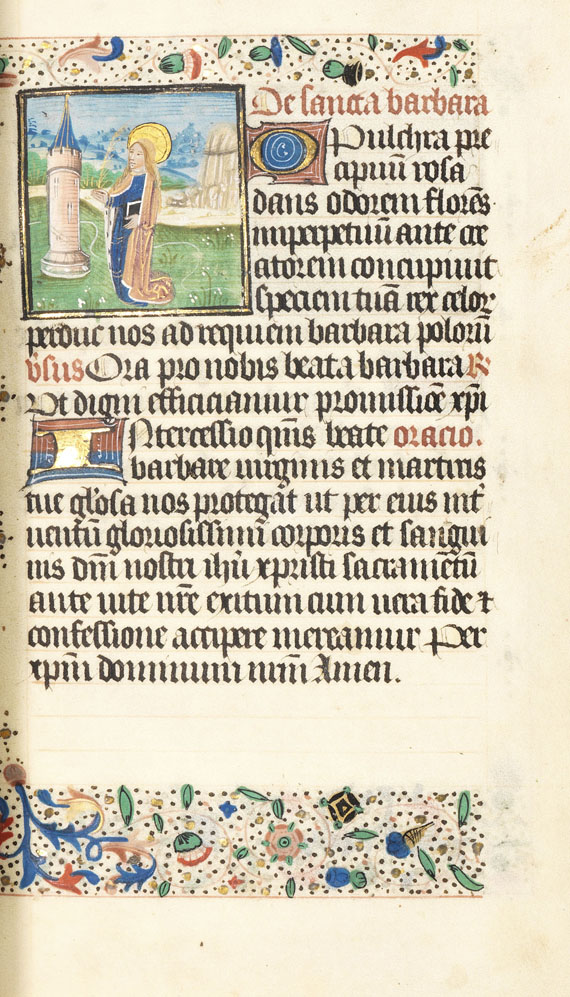 De sancta barbara
O Pulchra pre
cipuū rosa
dans odorem florēs
imperpetuū ante cre
atorem concupiuit
speciem tuā rex celoꝝ
perduc nos ad requiem barbara polorū
v̄sus Ora pro nobis beata barbara R
Vt digni efficiamur promissiōe xp̄i
INtercessio quis beate oracio.
barbare uirginis et martiris
tue gl'osa nos protegat ut per eius int
uentū gloriosissimi corporis et sangui
nis dn̄i nostri ihū xpristi sacramētū
ante uite nr̄e exitum cum uera fide ⁊
confessione accipere mereamur Per
xpm̄ dominum nr̄m Amen.